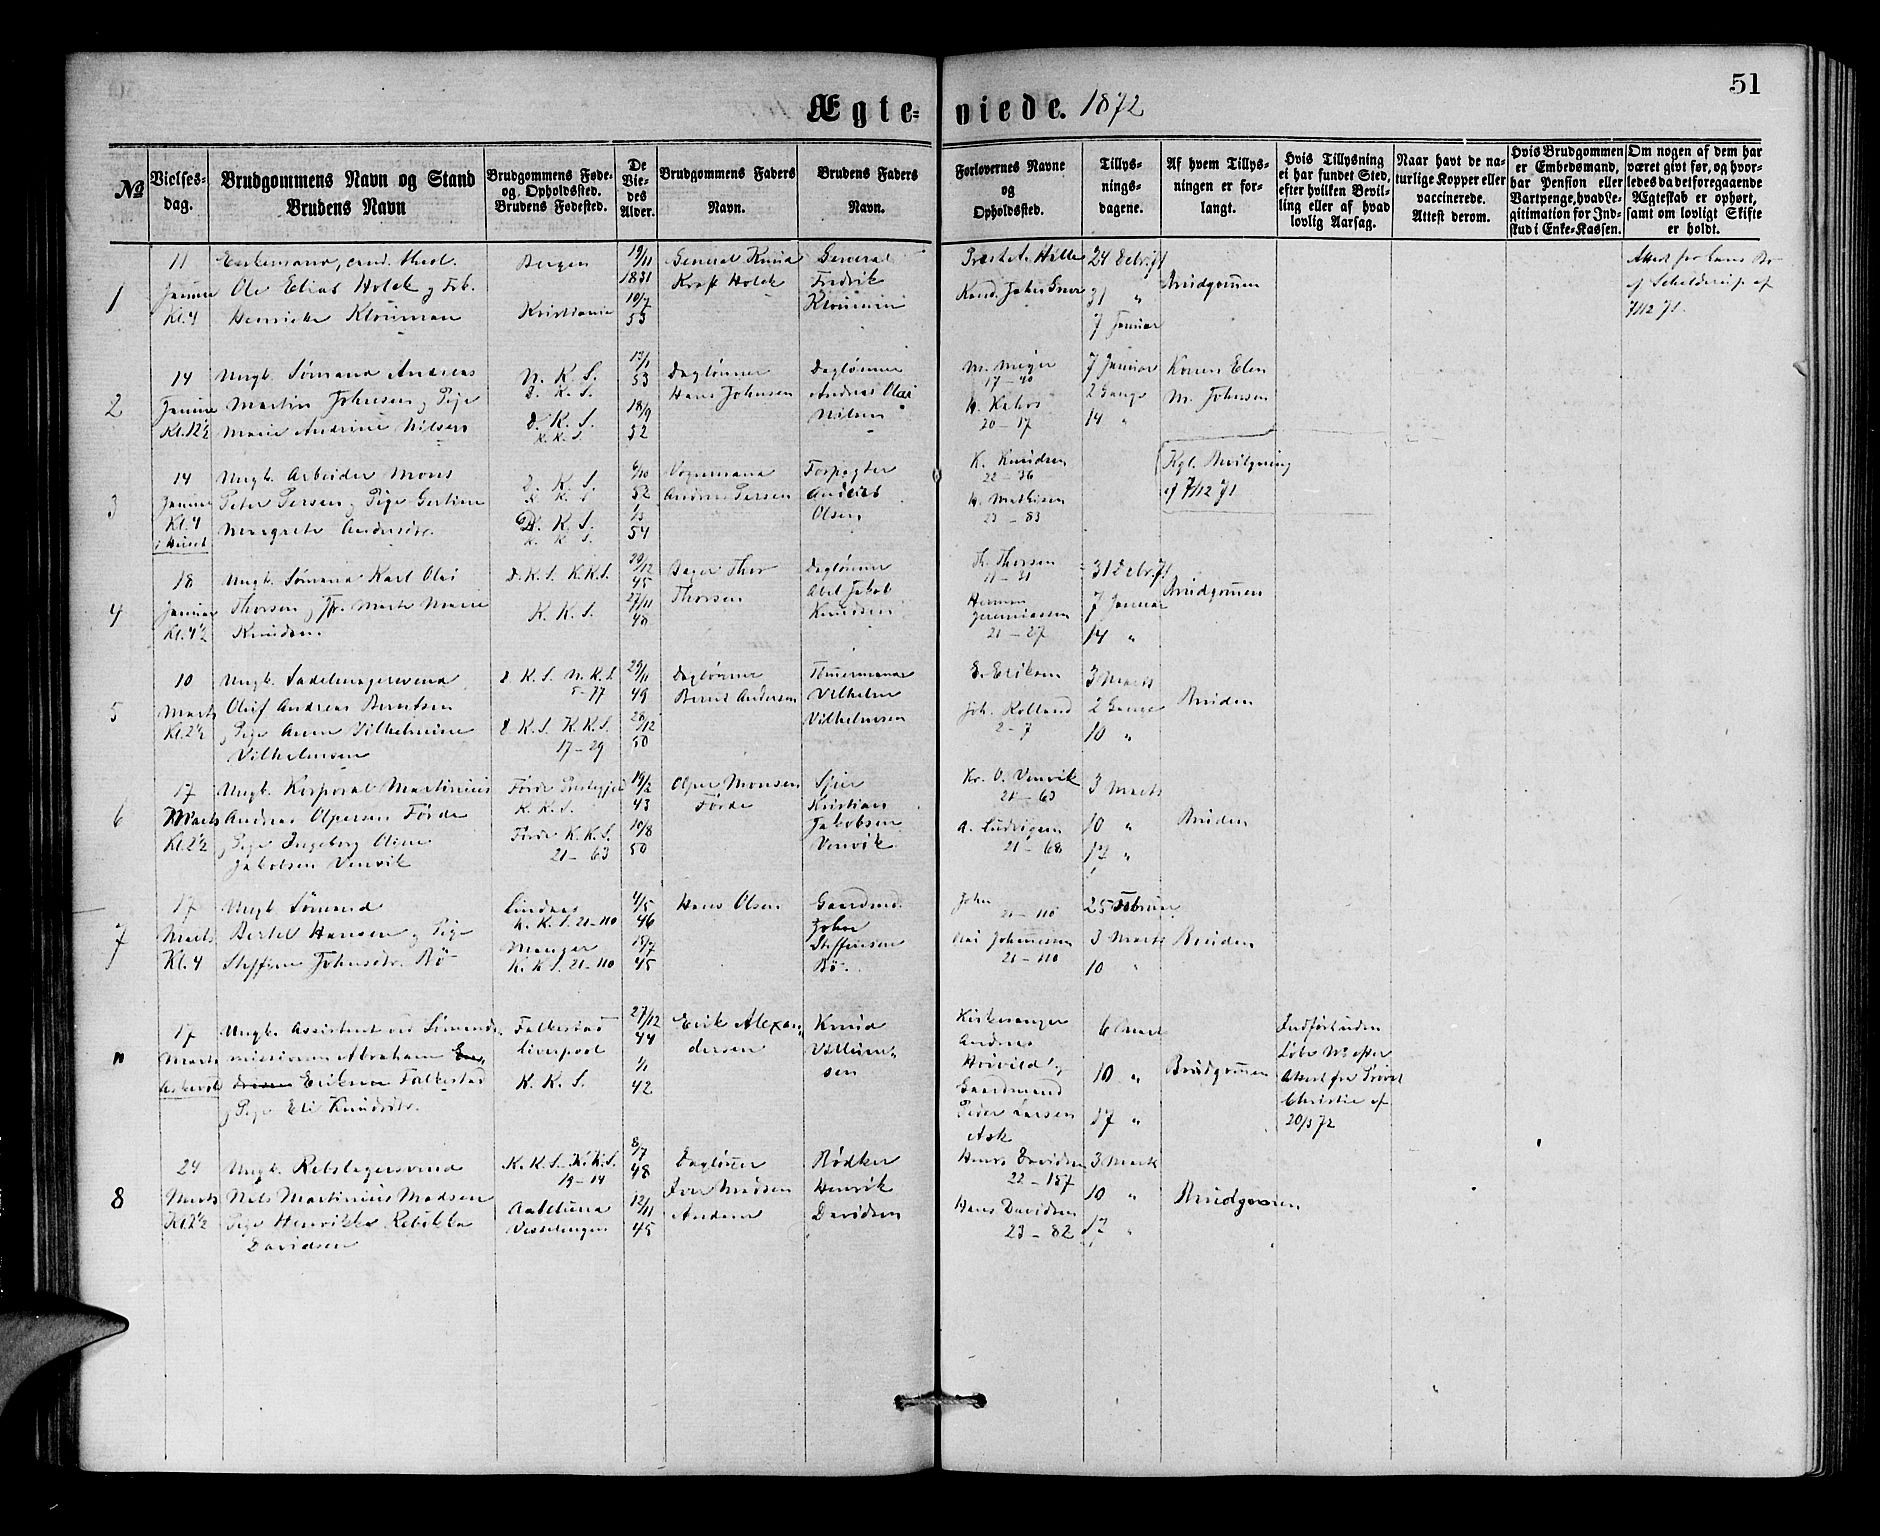 51
Ægteviede. 1872
№
Vielsesdag.
Brudgommens Navn og Stand
Brudens Navn
Brudgommens Føde- og Opholdssted.
Brudens Fødested.
De Viedes Alder.
Brudgommens Faders Navn.
Brudens Faders Navn.
Forlovernes Navne og Opholdssted.
Tillysningsdagene.
Af hvem Tillysningen er forlangt.
Hvis Tillysning ei har fundet Sted, efter hvilken Bevilling eller af hvad lovlig Aarsag.
Naar havt de naturlige Kopper eller vaccinerede. Attest derom.
Hvis Brudgommen er Embedsmand, har Pension eller Vartpenge, hvad Legitimation for Indskud i Enke-Kassen.
Om nogen af dem har været givt før, og hvorledes da det foregaaende Ægteskab er ophørt, samt om lovligt Skifte er holdt.
1
11 Januar Kl. 4
Enkemand, cand. theol.
Ole Elias Holck og Frk.
Henriette Klouman
Bergen
Kristiania
19/11 1831
10/7 53
General Knud
Kraft Holck
General
Fredrik
Klouman
24 Debr. 71
31 "
7 Januar
Brudgommen
7/12 71.
2
14 Januar Kl. 12½
Ungk. Sømand Andreas
Martin Johnsen og Pige
Marie Andrine Nilsen
N. K. S.
D. K. S.
D. K. S.
K. K. S.
13/1 53
18/9 52
Daglønner
Hans Johnsen
Daglønner
Andreas Olai
Nilsen
M. Meyer
17 – 40
20 – 17
7 Januar
2 Gange
14 "
M. Johnsen
3
14 Januar Kl. 4 i Huset
Ungk. Arbeider Mons
Peter Persen og Pige Gertine
Margrete Andersdr.
D. K. S.
K. K. S.
D. K. S.
K. K. S.
6/10 52
1/3 54
Vognmand
Anders Persen
Forpagter
Anders
Olsen
K. Knudsen
22 – 36
H. Mathisen
23 – 83
Kgl. Bevilgning
af 7/12 71
4
18 Januar Kl. 4½
Ungk. Sømand Karl Olai
Thorsen og Fr. Marte Marie
Knudsen.
D. K. S. K. K. S.
K. K. S.
29/12 45
27/11 48
Bager Thor
Thorsen
Daglønner
Abel Jakob
Knudsen
Th. Thorsen
11 – 31
Herman
Jeremiassen
21 – 27
31 Debr. 71
7 Januar
14 "
Brudgommen
5
10 Marts Kl. 2½
Ungk. Sadelmagersvend
Oluf Andreas Berntsen
og Pige Anna Vilhelmine
Vilhelmsen
D. K. S. N. K. S.
5 – 77
D. K. S. K. K. S.
17 – 29
29/11 49
28/12 50
Daglønner
Bernt Andersen
Tømermand
Vilhelm
Vilhelmsen
E. Eriksen
Joh. Rolland
2 – 7
3 Marts
2 Gange
10 "
Bruden
6
17 Marts Kl. 2½
Ungk. Korporal Martinius
Andreas Olpersen Førde
og Pige Ingeborg Oline
Jakobsen Venvik
Førde Prestegjeld
K. K. S.
Førde K. K. S.
21 – 63
19/2 43
10/8 50
Olper Monsen
Førde
Kristian
Jakobsen
Venvik
Kr. O. Venvik
21 – 63
A. Ludvigsen
21 – 68
3 Marts
10 "
17 "
Bruden
7
17 Marts Kl. 4
Ungk. Sømand
Bertel Hansen og Pige
Steffine Johnsdtr. Bø
Lindaas
K. K. S. 21 – 110
Manger
K. K. S. 21 – 110
4/5 46
15/7 45
Hans Olsen
Gaardmd.
John
Steffensen
Bø.
John
21 – 110
Olai Johnnessen
21 – 110
25 Februar
3 Marts
10 "
Bruden
n
17 Marts Askevold
Ungk. Assistent ved Sømands-
missionen Abraham
Eriksen Falkestad
og Pige Eli Knudsdtr.
Falkestad
Liverpool
K. K. S.
27/12 44
1/1 42
Erik Alexan-
dersen
Knud
Villum-
sen
Kirkesanger
Andreas
Høivik og
Gaardmand
Peder Larsen
Ask
10 "
17 "
Brudgommen
Indført uden
Løbe № efter
Attest fra Provst
Christie af
20/3 72
8
24 Marts Kl. 2½
Ungk. Rebslagersvend
Nils Martinius Madsen
Pige Henrikka Rebekka
Davidsen
K. K. S. K. K. S.
19 – 14
Aalesund
8/7 48
12/11 45
Daglønner
Iver Madsen
Bødker
Henrik
Davidsen
Hans Davidsen
22 – 157
Hans Davidsen
23 – 82
3 Marts
10 "
17 "
Brudgommen